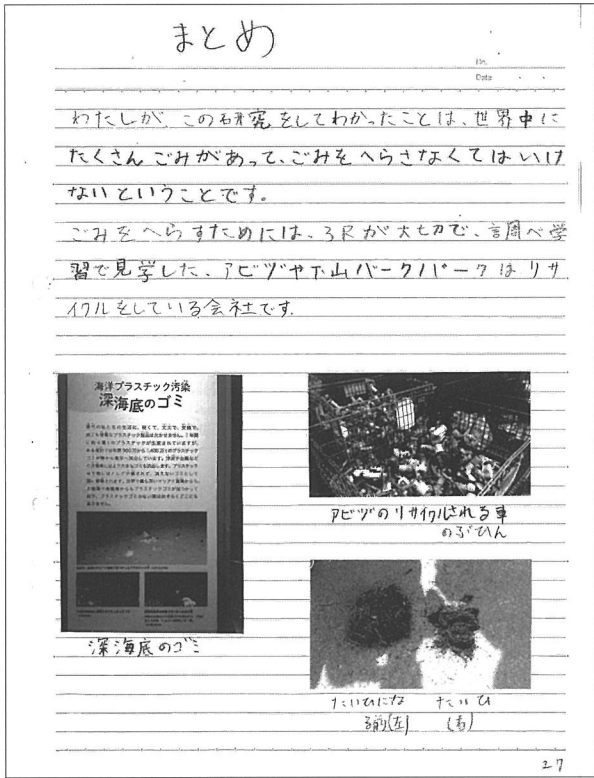 まとめ
No.
Date
わたしが、この研究をしてわかったことは、世界中に
たくさんごみがあって、ごみをへらさなくてはいけ
ないということです。
ごみをへらすためには、3Rが大切で、調べ学
習で見学した、アビヅや下山バークパークはリサ
イクルをしている会社です。
海洋プラスチック汚染
深海底のゴミ
深海底のゴミ
アビヅのリサイクルされる車
のぶひん
たいひにな
る前(左)
たいひ
(右)
27